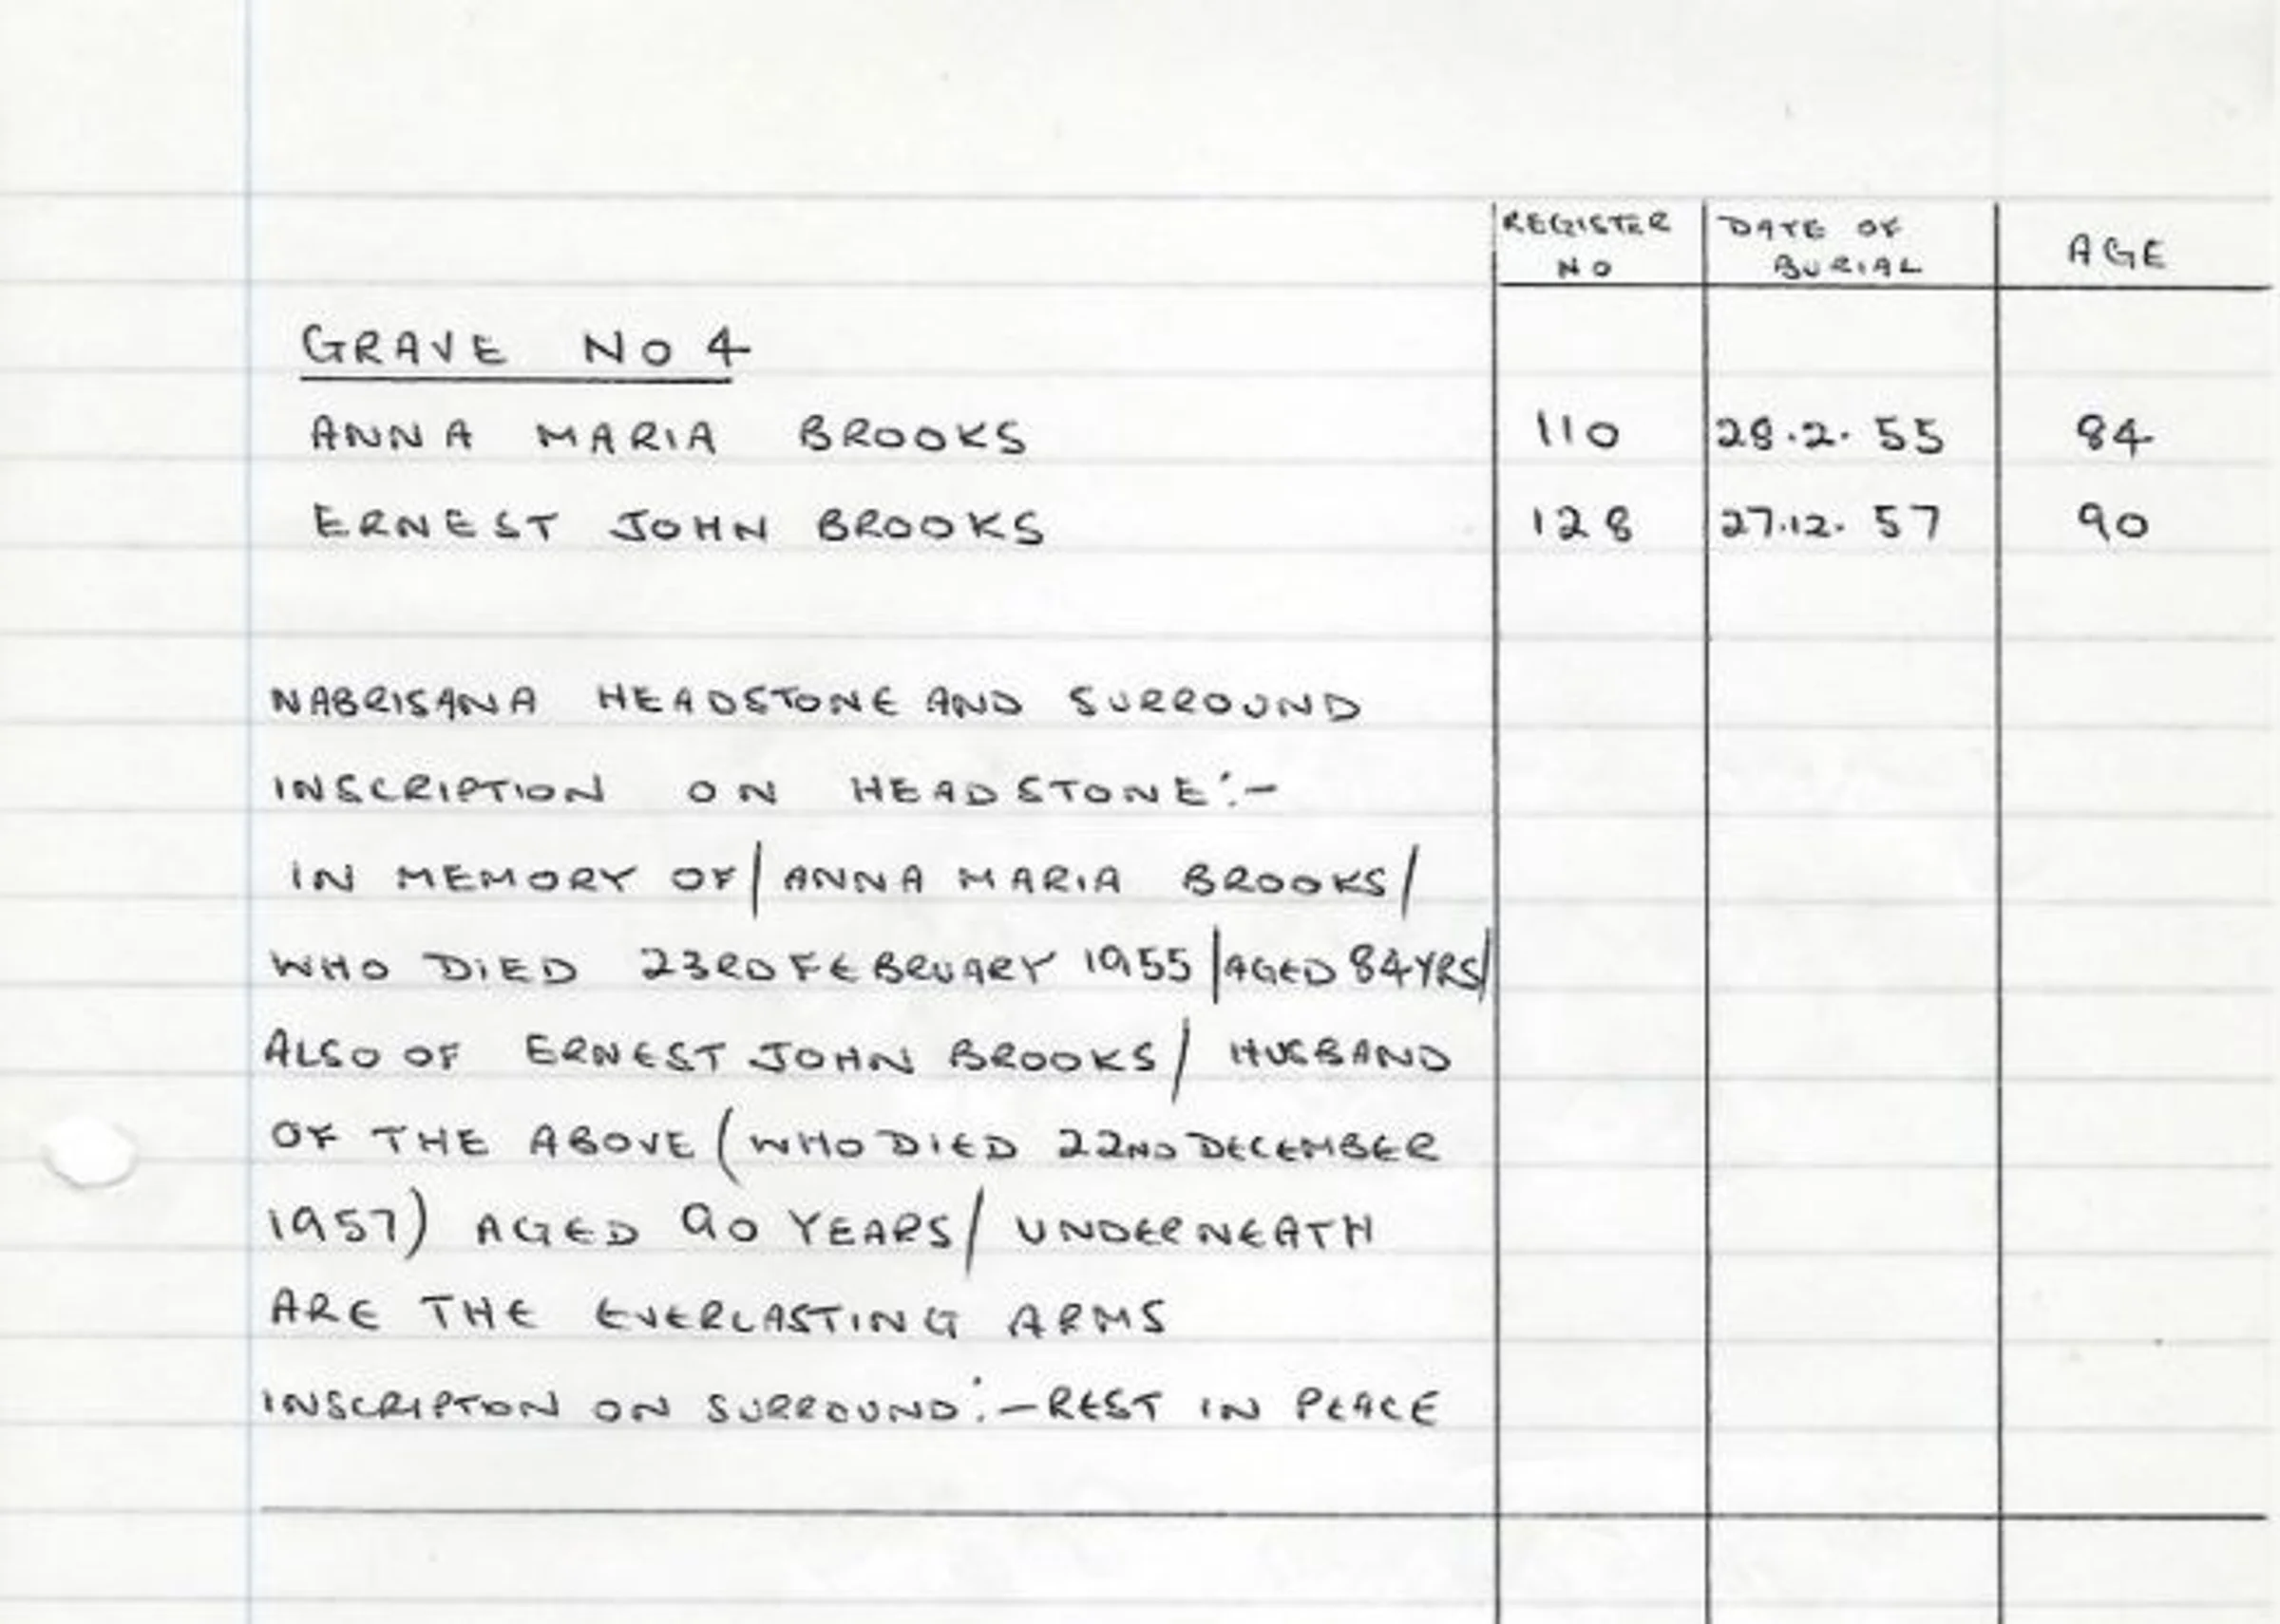 REGISTER NO DATE OF BURIAL AGE
GRAVE No 4
ANNA MARIA BROOKS 110 28.2.55 84
ERNEST JOHN BROOKS 128 27.12.57 90
NABRISANA HEADSTONE AND SURROUND
INSCRIPTION ON HEADSTONE:-
IN MEMORY OF/ ANNA MARIA BROOKS/
WHO DIED 23RD FEBRUARY 1955 /AGED 84YRS/
ALSO OF ERNEST JOHN BROOKS/ HUSBAND
OF THE ABOVE (WHO DIED 22ND DECEMBER
1957) AGED 90 YEARS/ UNDERNEATH
ARE THE EVERLASTING ARMS
INSCRIPTION ON SURROUND:- REST IN PEACE